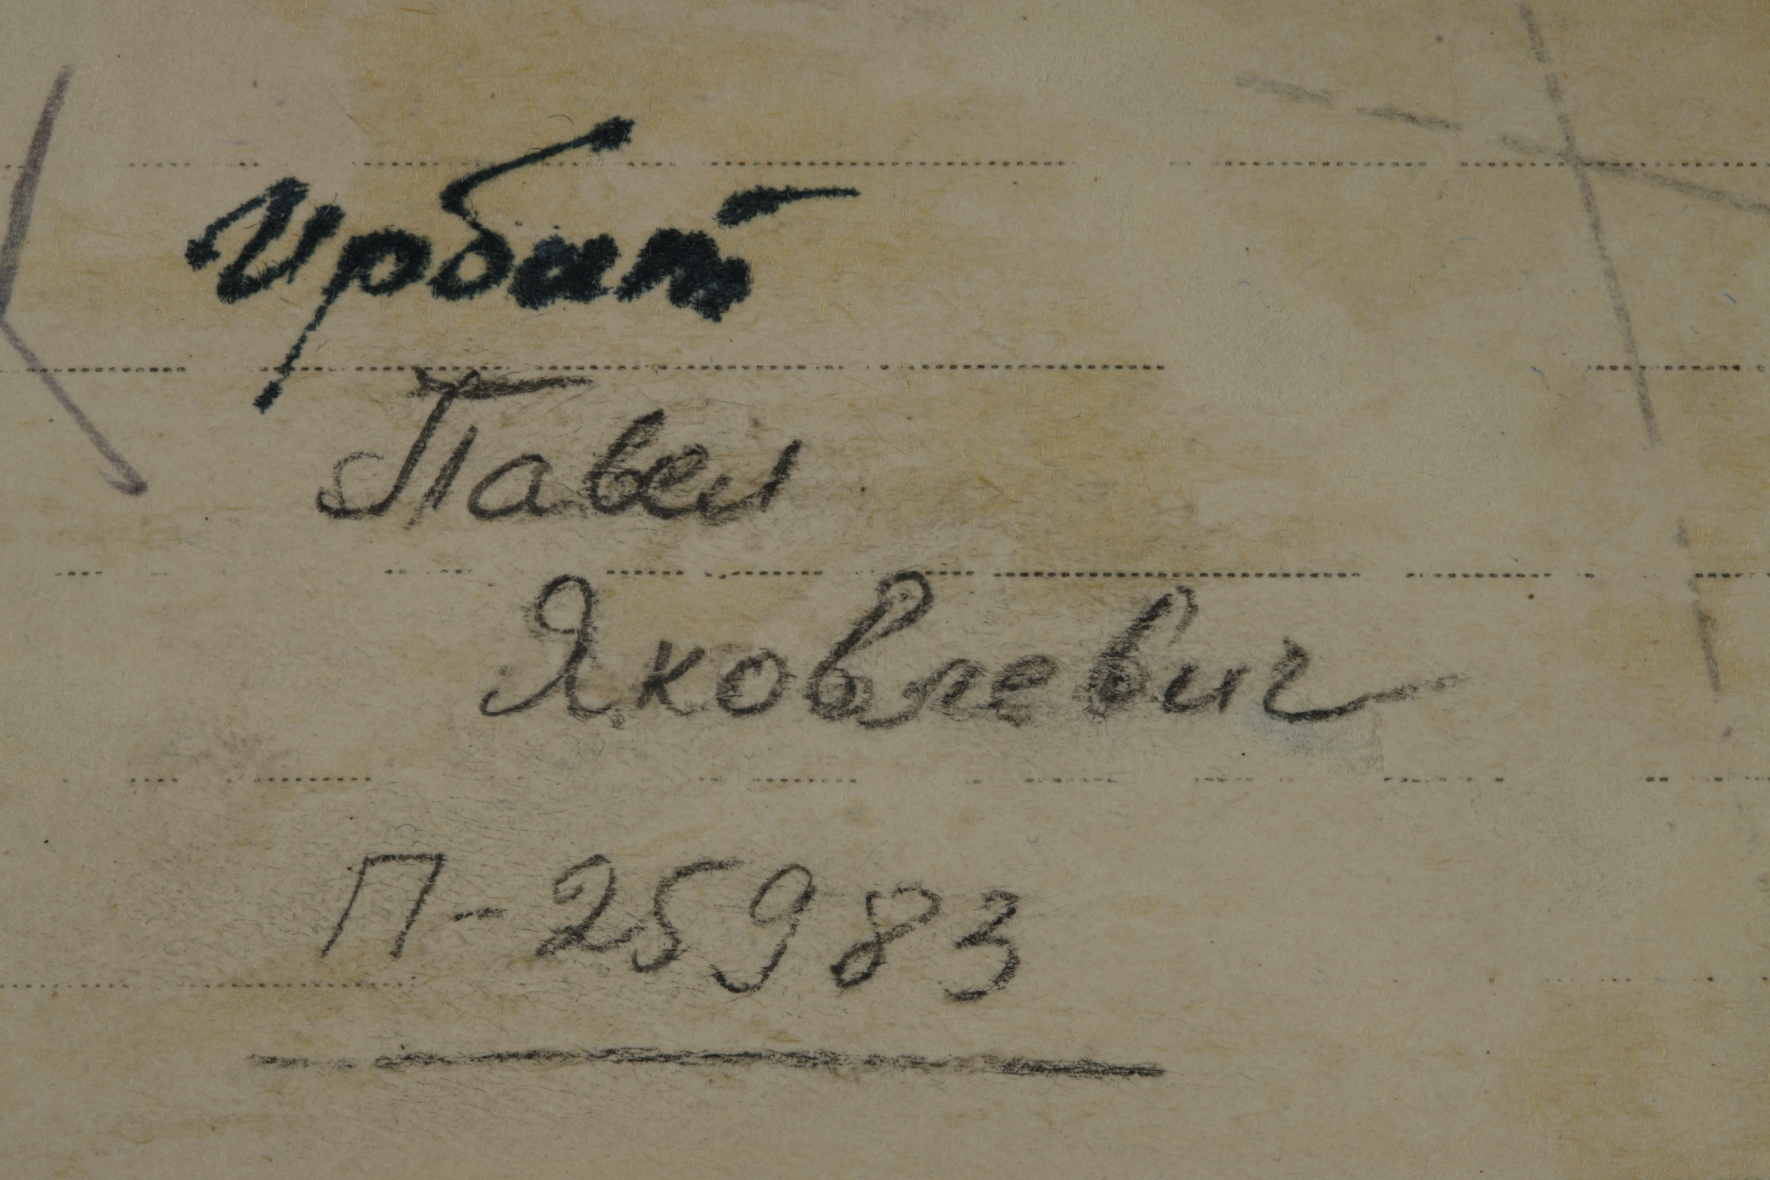 Ирбит
Павел
Яковлевич
П-25983